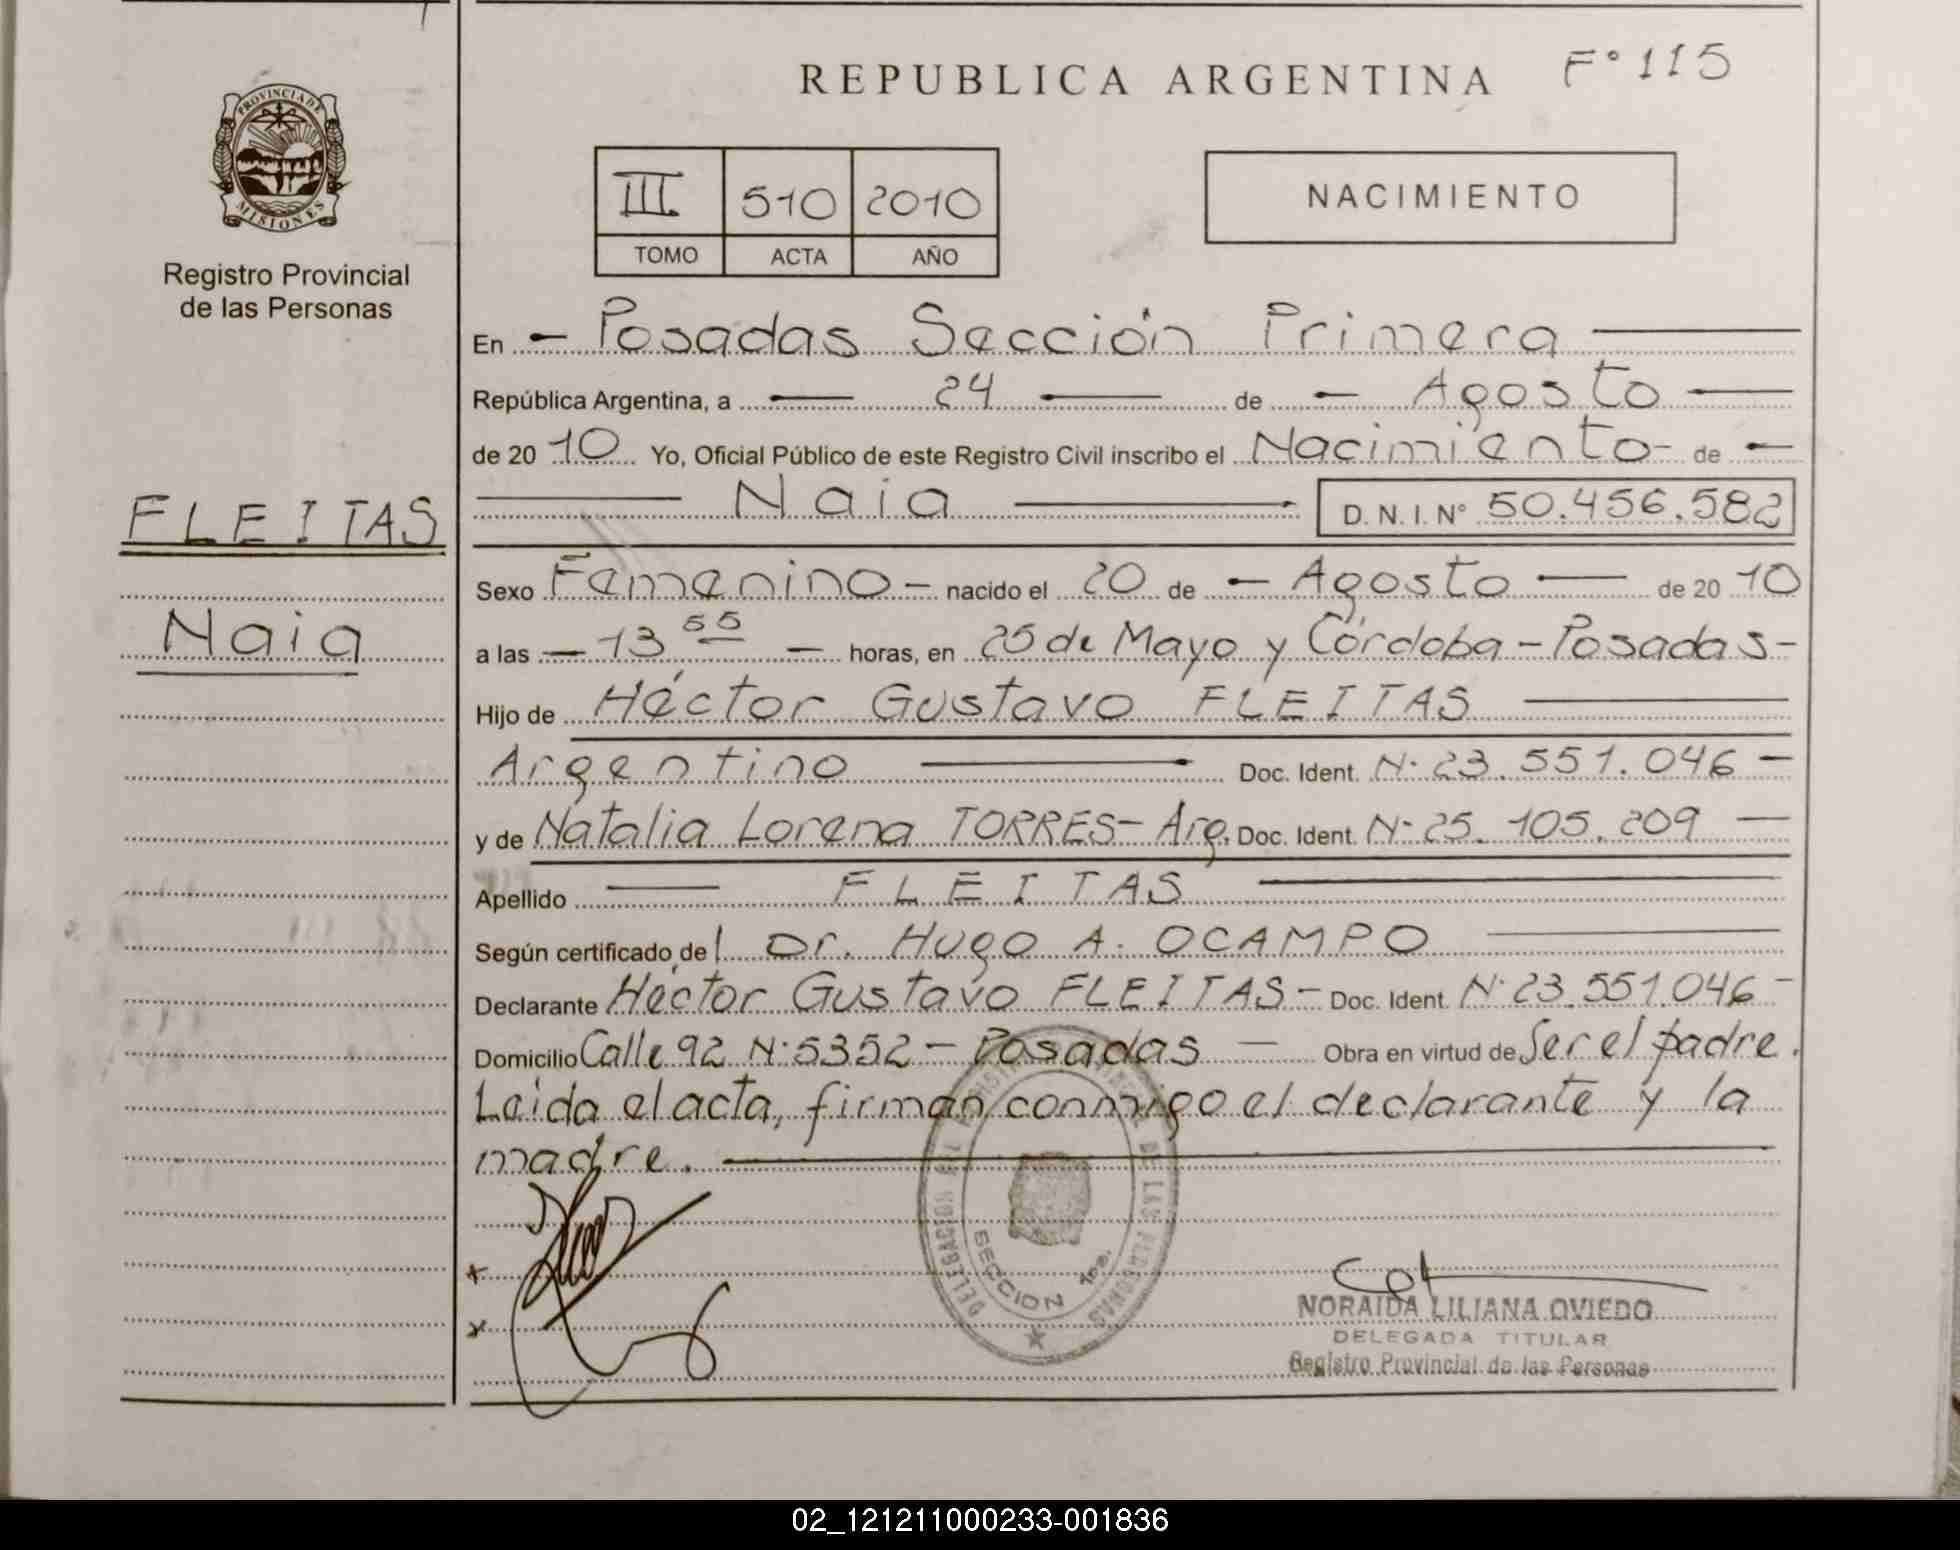 REPUBLICA ARGENTINA F° 115
PROVINCIA DE
MISIONES
Registro Provincial
de las Personas
III 510 2010
TOMO ACTA AÑO
NACIMIENTO
En - Posadas Sección Primera
República Argentina, a 24 de - Agosto
de 20 10 Yo, Oficial Público de este Registro Civil inscribo el Nacimiento - de -
Naia D. N. I. N° 50.456.582
FLEITAS
Naia
Sexo Femenino - nacido el 20 de - Agosto de 20 10
a las - 13 55 - horas, en 25 de Mayo y Córdoba - Posadas -
Hijo de Héctor Gustavo FLEITAS
Argentino Doc. Ident. N° 23.551.046 -
y de Natalia Lorena TORRES - Arg. Doc. Ident. N° 25.105.209
Apellido FLEITAS
Según certificado de l Dr. Hugo A. OCAMPO
Declarante Héctor Gustavo FLEITAS - Doc. Ident. N° 23.551.046 -
Domicilio Calle 92 N° 5352 - Posadas - Obra en virtud de Ser el padre.
Leída el acta, firman conmigo el declarante y la
madre.
DELEGACION DEL DE LAS PERSONAS
SECCION 1ra.
x
x
NORAIDA LILIANA OVIEDO
DELEGADA TITULAR
Registro Provincial de las Personas
02_121211000233-001836